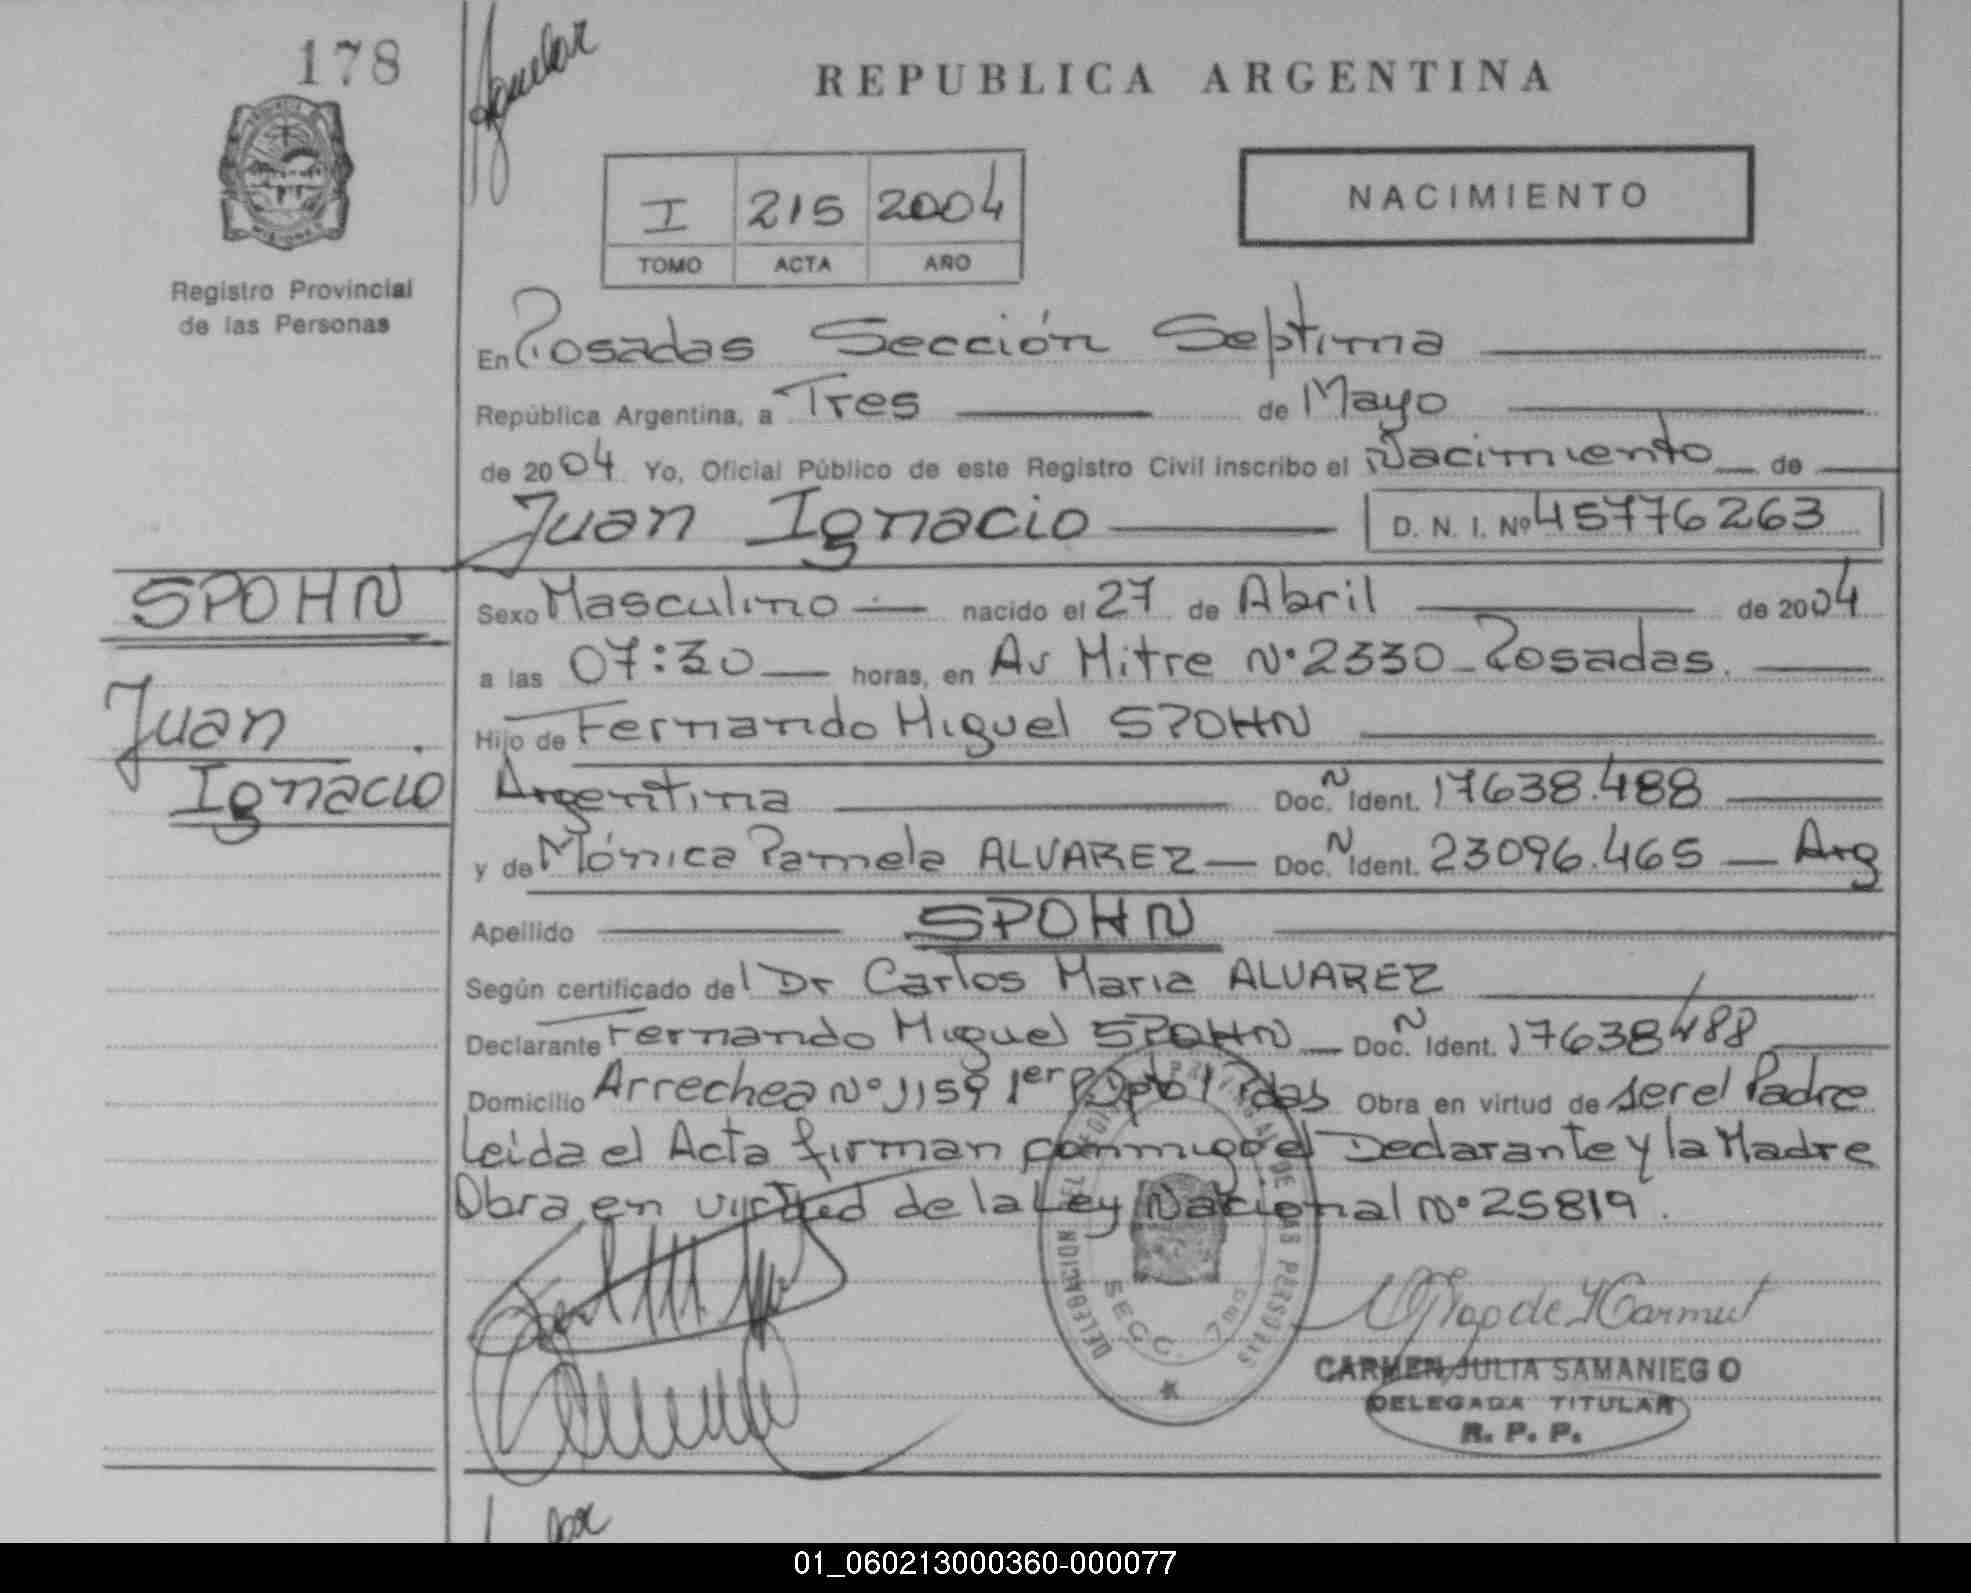 178
REPUBLICA ARGENTINA
I 215 2004
TOMO ACTA AÑO
NACIMIENTO
Registro Provincial
de las Personas
En Posadas Sección Septima
República Argentina, a Tres de Mayo
de 2004 Yo, Oficial Público de este Registro Civil inscribo el Nacimiento de
Juan Ignacio D. N. I. Nº 45776263
SPOHN
Juan
Ignacio
Sexo Masculino nacido el 27 de Abril de 2004
a las 07:30 horas, en Av Mitre Nº 2330 Posadas.
Hijo de Fernando Miguel SPOHN
Argentina Doc. N Ident. 17638.488
y de Mónica Pamela ALVAREZ Doc. N Ident. 23096.465 Arg
Apellido SPOHN
Según certificado del Dr Carlos Maria ALVAREZ
Declarante Fernando Miguel SPOHN Doc. N Ident. 17638488
Domicilio Arrechea Nº 1159 1er Obra en virtud de ser el Padre
Leida el Acta firman conmigo el Declarante y la Madre
Obra en virtud de la Ley Nacional Nº 25819.
DELEGACION DEL REGISTRO PROVINCIAL DE LAS PERSONAS
SECC. 7ma
CARMEN JULIA SAMANIEGO
DELEGADA TITULAR
R. P. P.
01_060213000360-000077